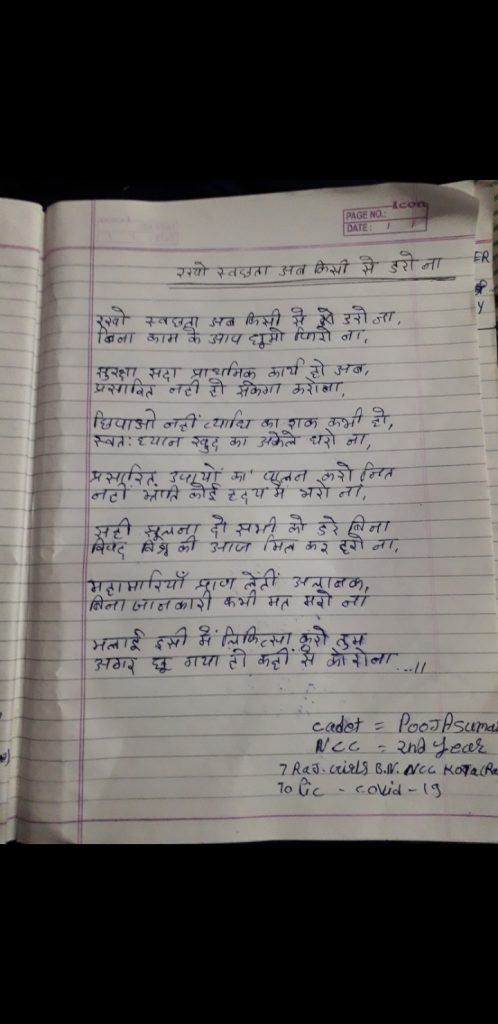 Icon
PAGE NO.:
DATE: / /
रखो स्वछता अब किसी से डरो ना
रखो स्वछता अब किसी से डरो ना,
बिना काम के आप घूमो फिरो ना,
सुरक्षा सदा प्राथमिक कार्य हो अब,
प्रसारित नही हो सकेगा करोना,
छिपाओ नहीं व्याधि का शक कभी हो,
स्वत: ध्यान खुद का अकेले धरो ना,
प्रसारित उपायों का पालन करो नित
नहीं भ्रांति कोई ह्रदय में भरो ना,
सही सूचना दो सभी को डरे बिना
विपद विश्व की आज मिल कर हरो ना,
महामारियाँ प्राण लेतीं अचानक,
बिना जानकारी कभी मत मरो ना
भलाई इसी में चिकित्सा करो तुम
अगर छू गया हो कहीं से कोरोना ...।।
cadet = Pooja suma
NCC = 2nd year
7 Raj. Girls B.N. NCC Kota (Ra
Topic - covid-19
ER
Y